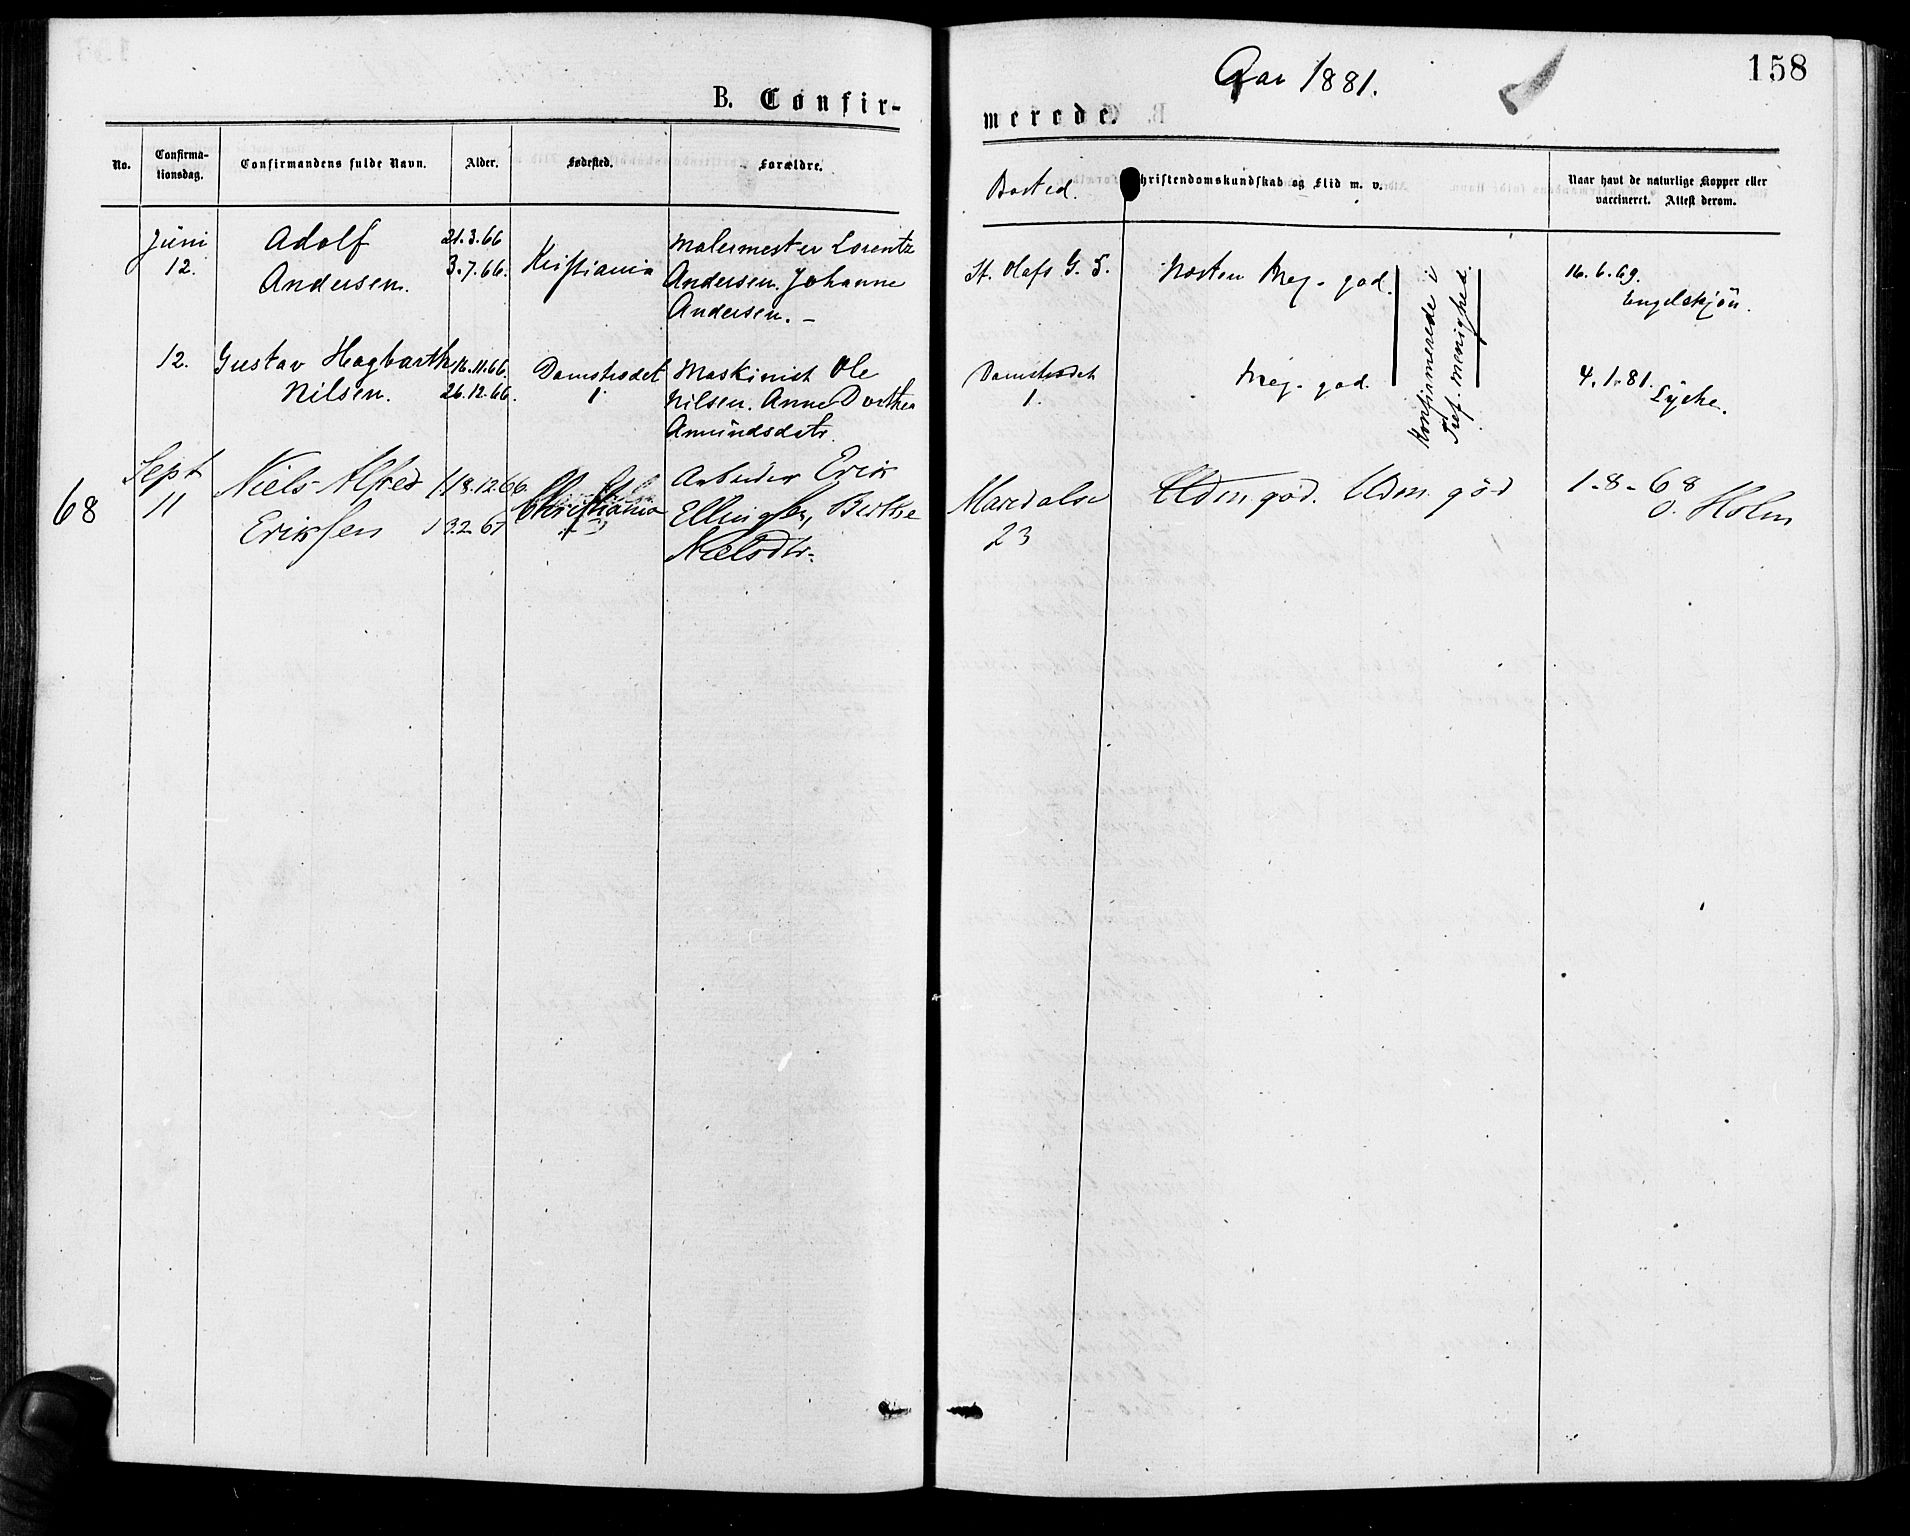 Aar 1881.
158
B. Confir-
merede.
No.
Confirma-
tionsdag.
Confirmandens fulde Navn.
Alder.
Fødested.
Forældre.
Bosted.
Christendomskundskab og Flid m. v.
Naar havt de naturlige Kopper eller
vaccineret. Attest derom.
Juni
12.
Adolf
Andersen.
21.3.66
3.7.66.
Kristiania
Malermester Lorentz
Andersen. Johanne
Andersen. –
St. Olafs G. 5.
Næsten Meg. god.
16.6.69.
Engelskjøn.
12.
Gustav Hagbarth
Nilsen.
16.11.66.
26.12.66.
Damstrædet
1.
Maskinist Ole
Nilsen. Anne Dorthea
Amundsdatr.
Damstrædet
1.
Meg. god.
Konfirmerede i
Tref. menighed.
4.1.81.
Lyche.
68
Sept
11
Niels Alfred
Eriksen
18.12.66.
3.2.67
Christiania
Arbeider Erik
Ellingsen, Berthe
Nielsdtr.
Maridalsv
23
Udm god. Udm. god
1-8-68
O. Holm